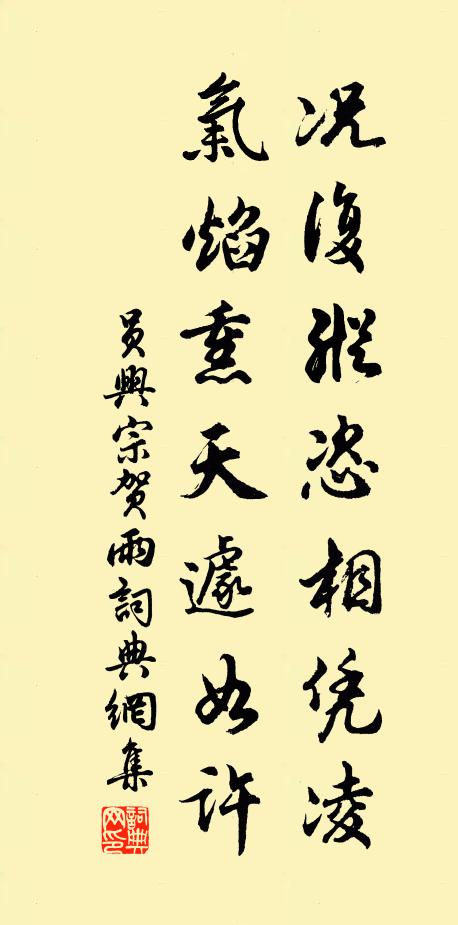 况復縱恣相凭凌
氣焰熏天遽如許
員興宗賀雨詞典網集
詞典网印